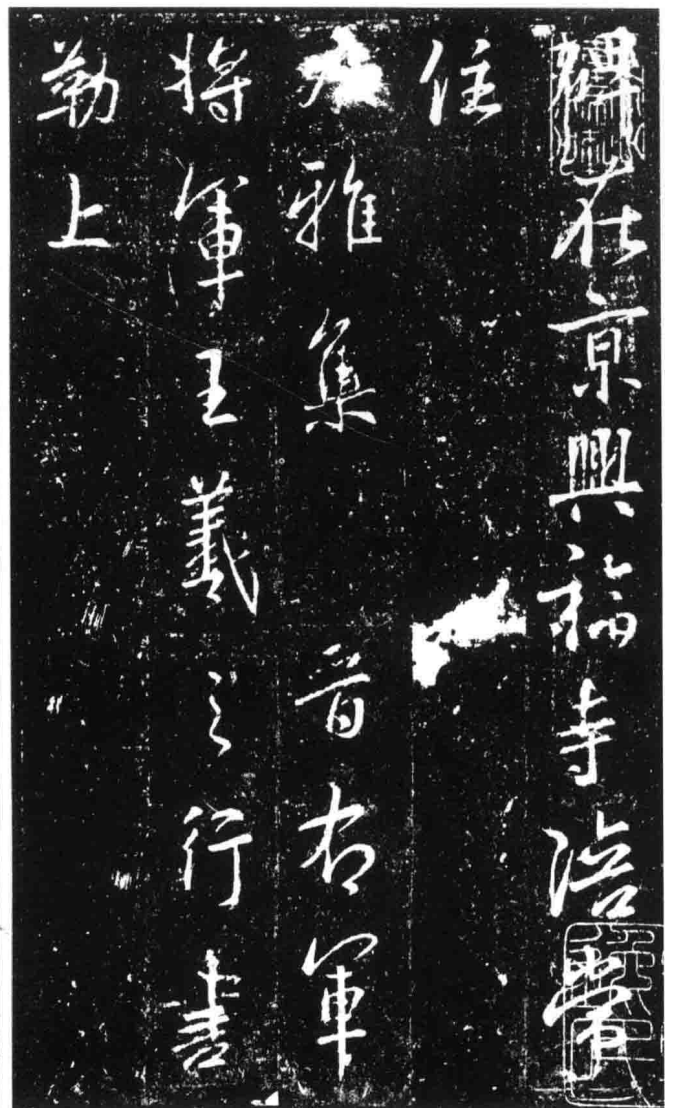 碑在京興福寺陪常
住
大雅集 晉右軍
將軍王羲之行書
勒上